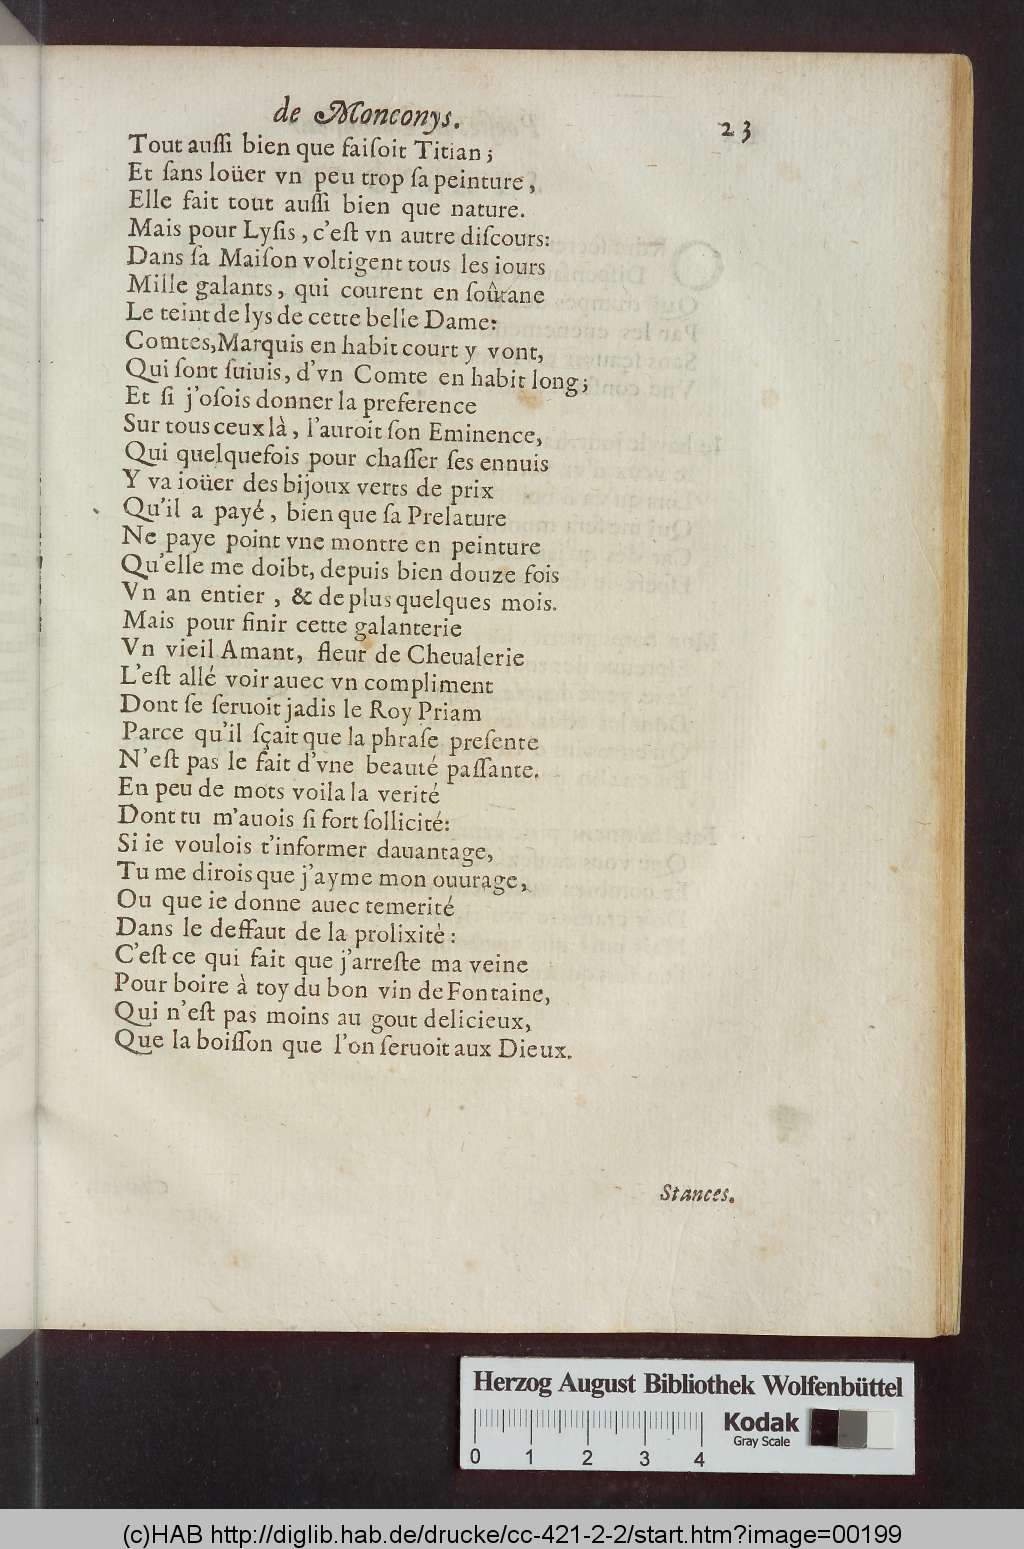 de Monconys. 23
Tout auſſi bien que faiſoit Titian;
Et ſans loüer vn peu trop ſa peinture,
Elle fait tout auſſi bien que nature.
Mais pour Lyſis, c'eſt vn autre diſcours:
Dans ſa Maiſon voltigent tous les iours
Mille galants, qui courent en ſoûtane
Le teint de lys de cette belle Dame:
Comtes, Marquis en habit court y vont,
Qui ſont ſuiuis, d'vn Comte en habit long;
Et ſi j'oſois donner la preference
Sur tous ceux là, l'auroit ſon Eminence,
Qui quelquefois pour chaſſer ſes ennuis
Y va ioüer des bijoux verts de prix
Qu'il a payé, bien que ſa Prelature
Ne paye point vne montre en peinture
Qu'elle me doibt, depuis bien douze fois
Vn an entier, & de plus quelques mois.
Mais pour finir cette galanterie
Vn vieil Amant, fleur de Cheualerie
L'eſt allé voir auec vn compliment
Dont ſe ſeruoit jadis le Roy Priam
Parce qu'il ſçait que la phraſe preſente
N'eſt pas le fait d'vne beauté paſſante.
En peu de mots voila la verité
Dont tu m'auois ſi fort ſollicité:
Si ie voulois t'informer dauantage,
Tu me dirois que j'ayme mon ouurage,
Ou que ie donne auec temerité
Dans le deffaut de la prolixitè:
C'eſt ce qui fait que j'arreſte ma veine
Pour boire à toy du bon vin de Fontaine,
Qui n'eſt pas moins au gout delicieux,
Que la boiſſon que l'on ſeruoit aux Dieux.
Stances.
Herzog August Bibliothek Wolfenbüttel
Kodak
Gray Scale
0 1 2 3 4
(c)HAB http://diglib.hab.de/drucke/cc-421-2-2/start.htm?image=00199